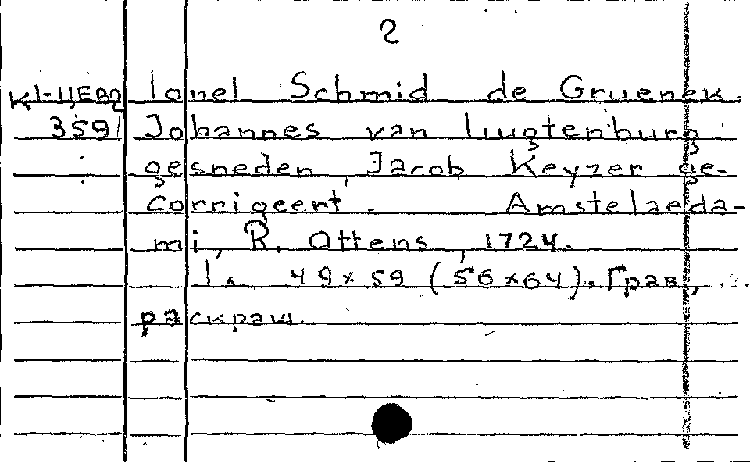 2
Ionel Schmid de Gruenek.
359 Johannes van lugtenburg
gesneden, Jacob Keyzer ge-
corrigeert. Amstelaeda-
mi, R. Ottens, 1724.
1. 49×59 (56×64). Грав.,
раскраш.